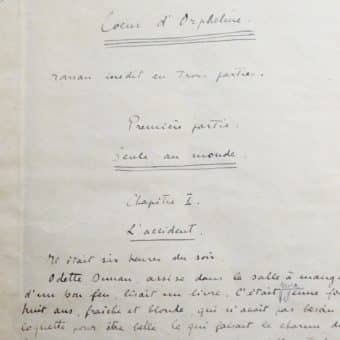 Coeur d'Orpheline
roman inédit en Trois parties.
Première partie.
Seule au monde.
Chapitre I.
L'accident.
Il était six heures du soir.
Odette Dunan, assise dans la salle à mange
d'un bon feu, lisait un livre. C'était une jeune
huit ans, fraîche et blonde, qui n'avait pas besoin
coquette pour être belle, ce qui faisait le charme de